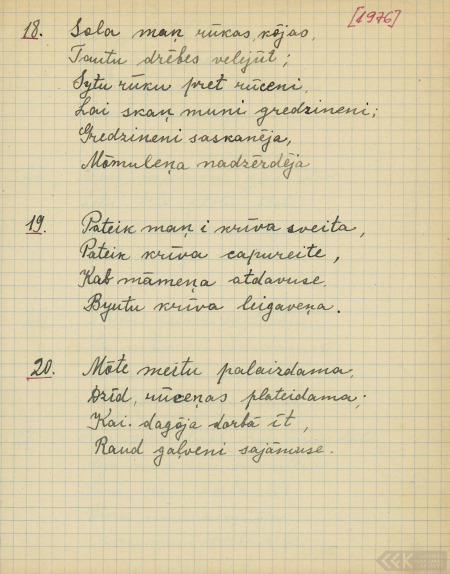 [1976]
18. Sola maņ rūkas, kōjas,
Tautu drēbes velejūt;
Sytu rūku pret rūceni,
Lai skaņ muni gredzineni;
Gredzineni saskanēja,
Mōmuleņa nadzērdēja
19. Pateik maņ i krīva sveita,
Pateik krīva capureite,
Kab māmeņa atdavuse,
Byutu krīva leigaveņa.
20. Mōte meitu palaizdama,
Dzīd, rūceņas plateidama;
Kai dagōja dorbā īt,
Raud gaļveni sajāmuse.